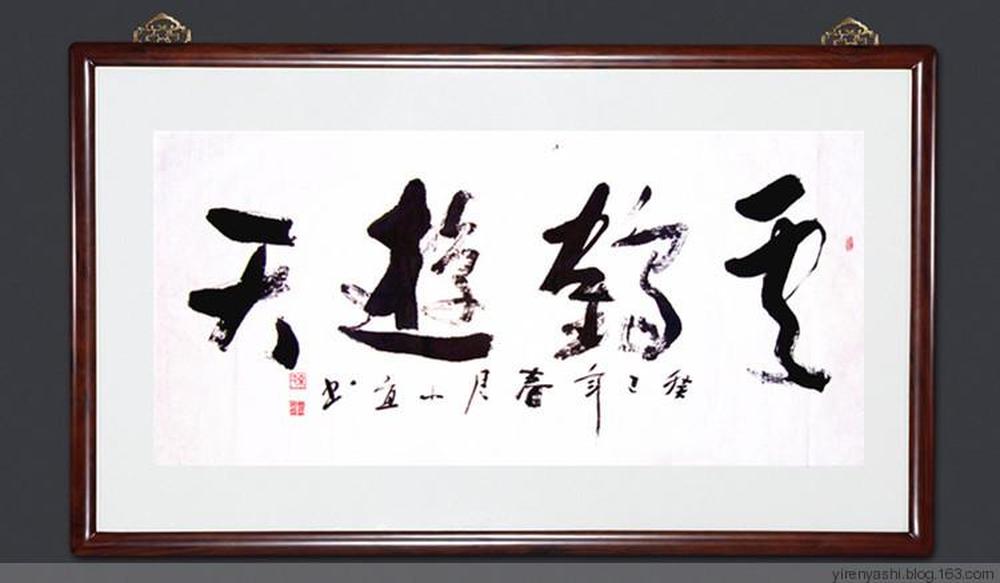 云鹤遊天
癸巳年春周小宜书
yirenyashi.blog.163.com